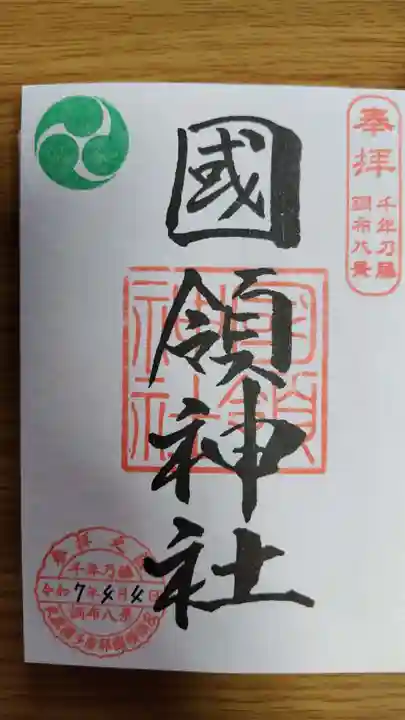 奉拝
千年乃藤
調布八景
國領神社
國領
神社
千年乃藤
令和7年4月4日
調布八景